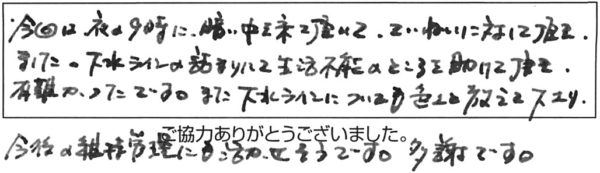 今回は夜の9時に、暗い中を来て頂いて、ていねいに対して頂き、
ました。下水ラインの詰まりにて生活不能のところを助けて頂き、
有難かったです。また下水ラインについても色々と教えて下さり、
ご協力ありがとうございました。
今後の維持管理にも活かせそうです。多謝です。